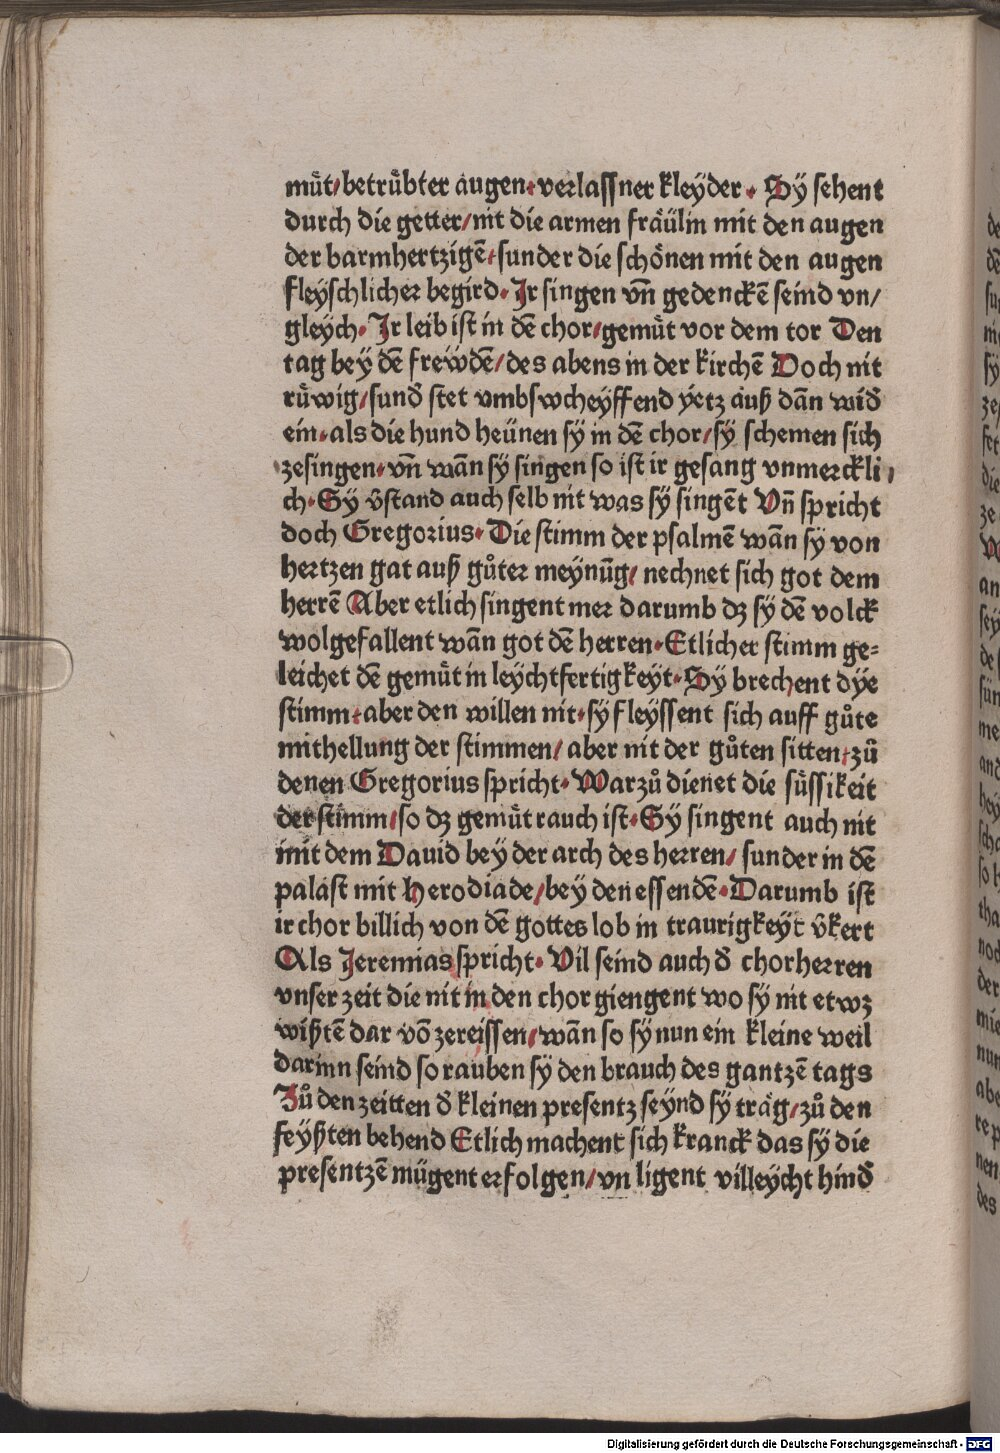 müt/ betrübter augen· verlassner kleÿder· Sÿ sehent
durch die getter/ nit die armen fraülin mit den augen
der barmhertzigē· sunder die schönen mit den augen
fleÿschlicher begird· Ir singen vñ gedenckē seind vn/
gleÿch· Ir leib ist in dē chor/ gemüt vor dem tor Den
tag beÿ dē frewdē/ des abens in der kirchē Doch nit
rüwig/ sund̄ stet vmbswcheÿffend ÿetz auß dañ wid̄
ein· als die hund heünen sÿ in dē chor/ sÿ schemen sich
zesingen· vñ wañ sÿ singen so ist ir gesang vnmerckli
ch· Sÿ v̄stand auch selb nit was sÿ singēt Vñ spricht
doch Gregorius· Die stimm der psalmē wañ sÿ von
hertzen gat auß gůter meynūg/ nechnet sich got dem
herrē Aber etlich singent mer darumb dz sÿ dē volck
wolgefallent wañ got dē herren· Etlicher stimm ge⸗
leichet dē gemüt in leÿchtfertigkeyt· Sÿ brechent dÿe
stimm· aber den willen nit· sÿ fleÿssent sich auff gůte
mithellung der stimmen/ aber nit der gůten sitten· zů
denen Gregorius spricht· Warzů dienet die süssikeit
der stimm/ so dz gemüt rauch ist· Sÿ singent auch nit
mit dem Dauid beÿ der arch des herren/ sunder in dē
palast mit Herodiade/ beÿ den essendē· Darumb ist
ir chor billich von dē gottes lob in traurigkeyt v̄kert
Als Jeremias spricht· Vil seind auch d̄ chorherren
vnser zeit die nit in den chor giengent wo sÿ nit etwz
wißtē dar vō zereissen/ wañ so sÿ nun ein kleine weil
darinn seind so rauben sÿ den brauch des gantzē tags
Zů den zeitten d̄ kleinen presentz seÿnd sÿ träg/ zů den
feÿßten behend Etlich machent sich kranck das sÿ die
presentzē mügent erfolgen/ vn ligent villeÿcht hind̄
Digitalisierung gefördert durch die Deutsche Forschungsgemeinschaft - DFG